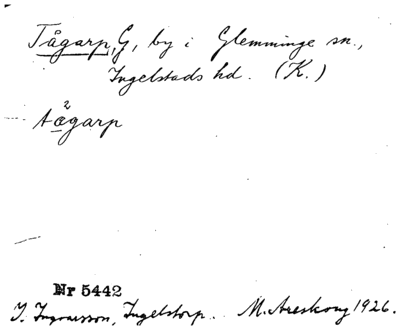 Tågarp, G, by i Glemminge sn.,
Ingelstads hd. (K.)
tågarp
Nr 5442
I. Ingvarsson, Ingelstorp. M. Areskoug 1926.